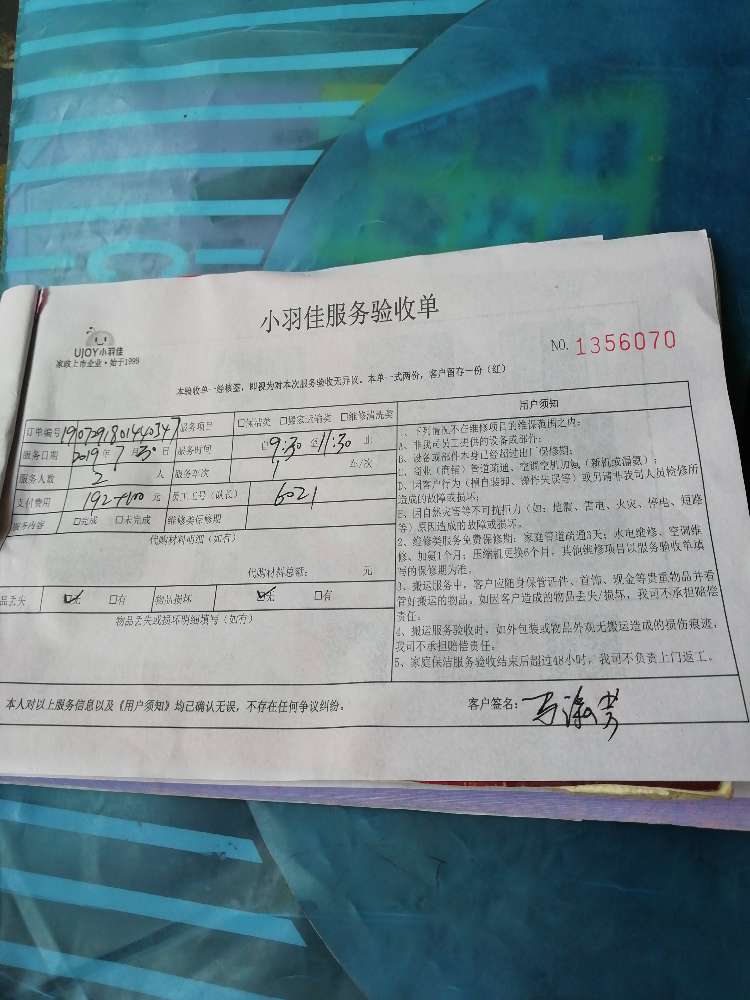 小羽佳服务验收单
UJOY小羽佳
家政上市企业·始于1999
NO. 1356070
本验收单一经核签，即视为对本次服务验收无异议。本单一式两份，客户留存一份（红）
订单编号 1907291801440347 服务项目 □保洁类 □搬家运输类 □维修清洗类
服务日期 2019年7月30日 服务时间 自9:30至11:30止
服务人数 2 人 服务车次 1 车/次
支付费用 192+100 元 员工工号（队长） 6021
服务内容 □完成 □未完成 维修类保修期
代购材料明细（如有）
代购材料总额： 元
品丢失 □无 □有 物品损坏 □无 □有
物品丢失或损坏明细填写（如有）
用户须知
1、下列情况不在维修项目的维保范围之内：
A、非我司员工提供的设备或部件；
B、设备或部件本身已经超过出厂保修期；
C、商业（商铺）管道疏通、空调空机加氨（新机或漏氨）；
D、因客户行为（擅自装卸、操作失误等）或另请非我司人员检修所
造成的故障或损坏；
E、因自然灾害等不可抗拒力（如：地震、雷电、火灾、停电、短路
等）原因造成的故障或损坏。
2、维修类服务免费保修期：家庭管道疏通3天；水电维修、空调维
修、加氨1个月；压缩机更换6个月，其他维修项目以服务验收单填
写的保修期为准。
3、搬运服务中，客户应随身保管证件、首饰、现金等贵重物品并看
管好搬运的物品，如因客户造成的物品丢失/损坏，我司不承担赔偿
责任。
4、搬运服务验收时，如外包装或物品外观无搬运造成的损伤痕迹，
我司不承担赔偿责任。
5、家庭保洁服务验收结束后超过48小时，我司不负责上门返工。
本人对以上服务信息以及《用户须知》均已确认无误，不存在任何争议纠纷。
客户签名：